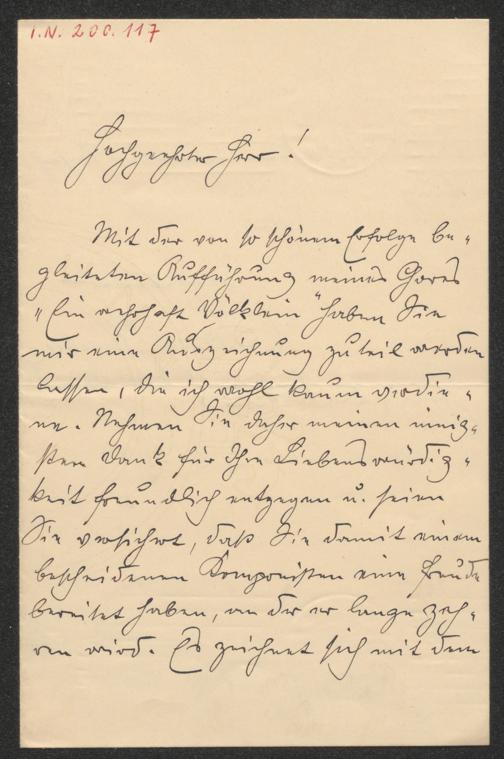 I.N. 200.117
Hochgeehrter Herr!
Mit der von so schönem Erfolge be-
gleiteten Aufführung meines Chores
"Ein wehrhaft Völklein" haben Sie
mir eine Auszeichnung zuteil werden
lassen, die ich wohl kaum verdie-
ne. Nehmen Sie daher meinen innig-
sten Dank für Ihre Liebenswürdig-
keit freundlich entgegen u. seien
Sie versichert, daß Sie damit einem
bescheidenen Komponisten eine Freude
bereitet haben, an der er lange zeh-
ren wird. Es zeichnet sich mit dem